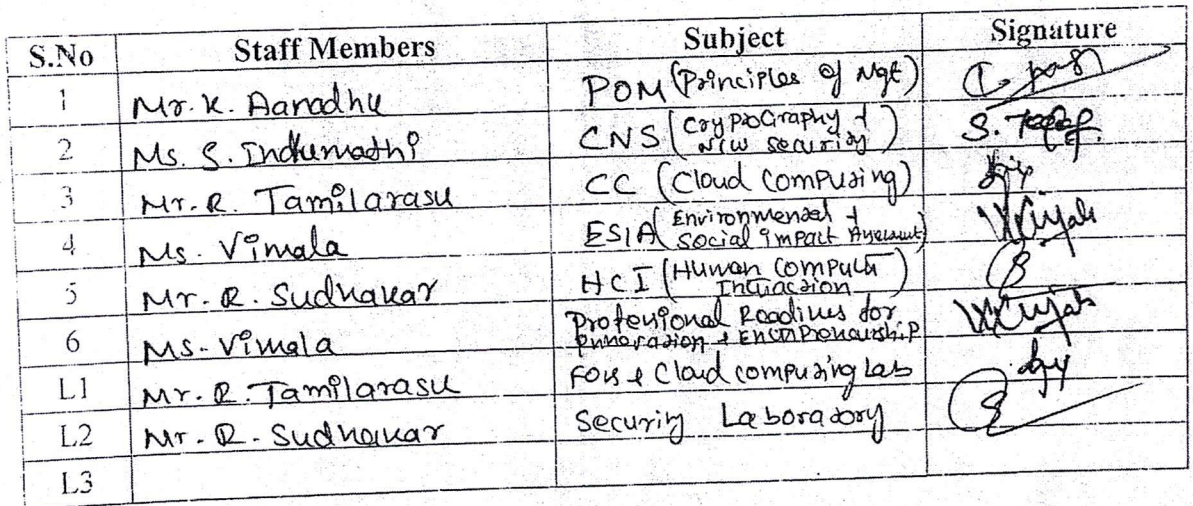 S.No Staff Members Subject Signature
1 Mr. K. Aanadhu POM (Principles of Mgt)
2 Ms. S. Indhumathi CNS (Crypography + N/W security)
3 Mr. R. Tamilarasu CC (Cloud Computing)
4 Ms. Vimala ESIA (Environmental + Social impact)
5 Mr. R. Sudhakar HCI (Human Computer Interaction)
6 Ms. Vimala Professional Readines for Innovation + Entrepreneurship
L1 Mr. R. Tamilarasu & Cloud computing Lab
L2 Mr. R. Sudhakar Security Laboratory
L3